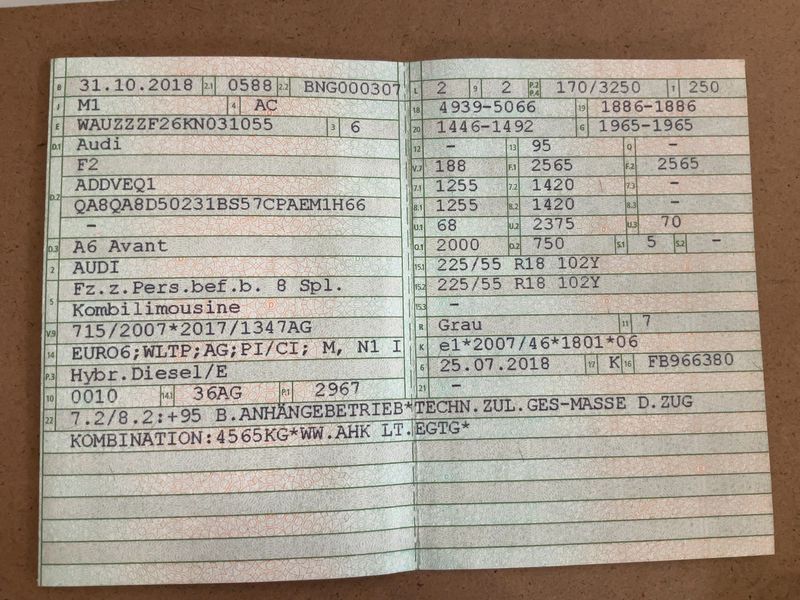 B 31.10.2018 2.1 0588 2.2 BNG000307
J M1 4 AC
E WAUZZZF26KN031055 3 6
D.1 Audi
F2
D.2 ADDVEQ1
QA8QA8D50231BS57CPAEM1H66
-
D.3 A6 Avant
2 AUDI
5 Fz.z.Pers.bef.b. 8 Spl.
Kombilimousine
V.9 715/2007*2017/1347AG
14 EURO6;WLTP;AG;PI/CI; M, N1 I
P.3 Hybr.Diesel/E
10 0010 14.1 36AG P.1 2967
L 2 9 2 P.2 P.4 170/3250 T 250
18 4939-5066 19 1886-1886
20 1446-1492 G 1965-1965
12 - 13 95 Q -
V.7 188 F.1 2565 F.2 2565
7.1 1255 7.2 1420 7.3 -
8.1 1255 8.2 1420 8.3 -
U.1 68 U.2 2375 U.3 70
O.1 2000 O.2 750 S.1 5 S.2 -
15.1 225/55 R18 102Y
15.2 225/55 R18 102Y
15.3 -
R Grau 11 7
K e1*2007/46*1801*06
6 25.07.2018 17 K 16 FB966380
21 -
22 7.2/8.2:+95 B.ANHÄNGEBETRIEB*TECHN.ZUL.GES-MASSE D.ZUG
KOMBINATION:4565KG*WW.AHK LT.EGTG*